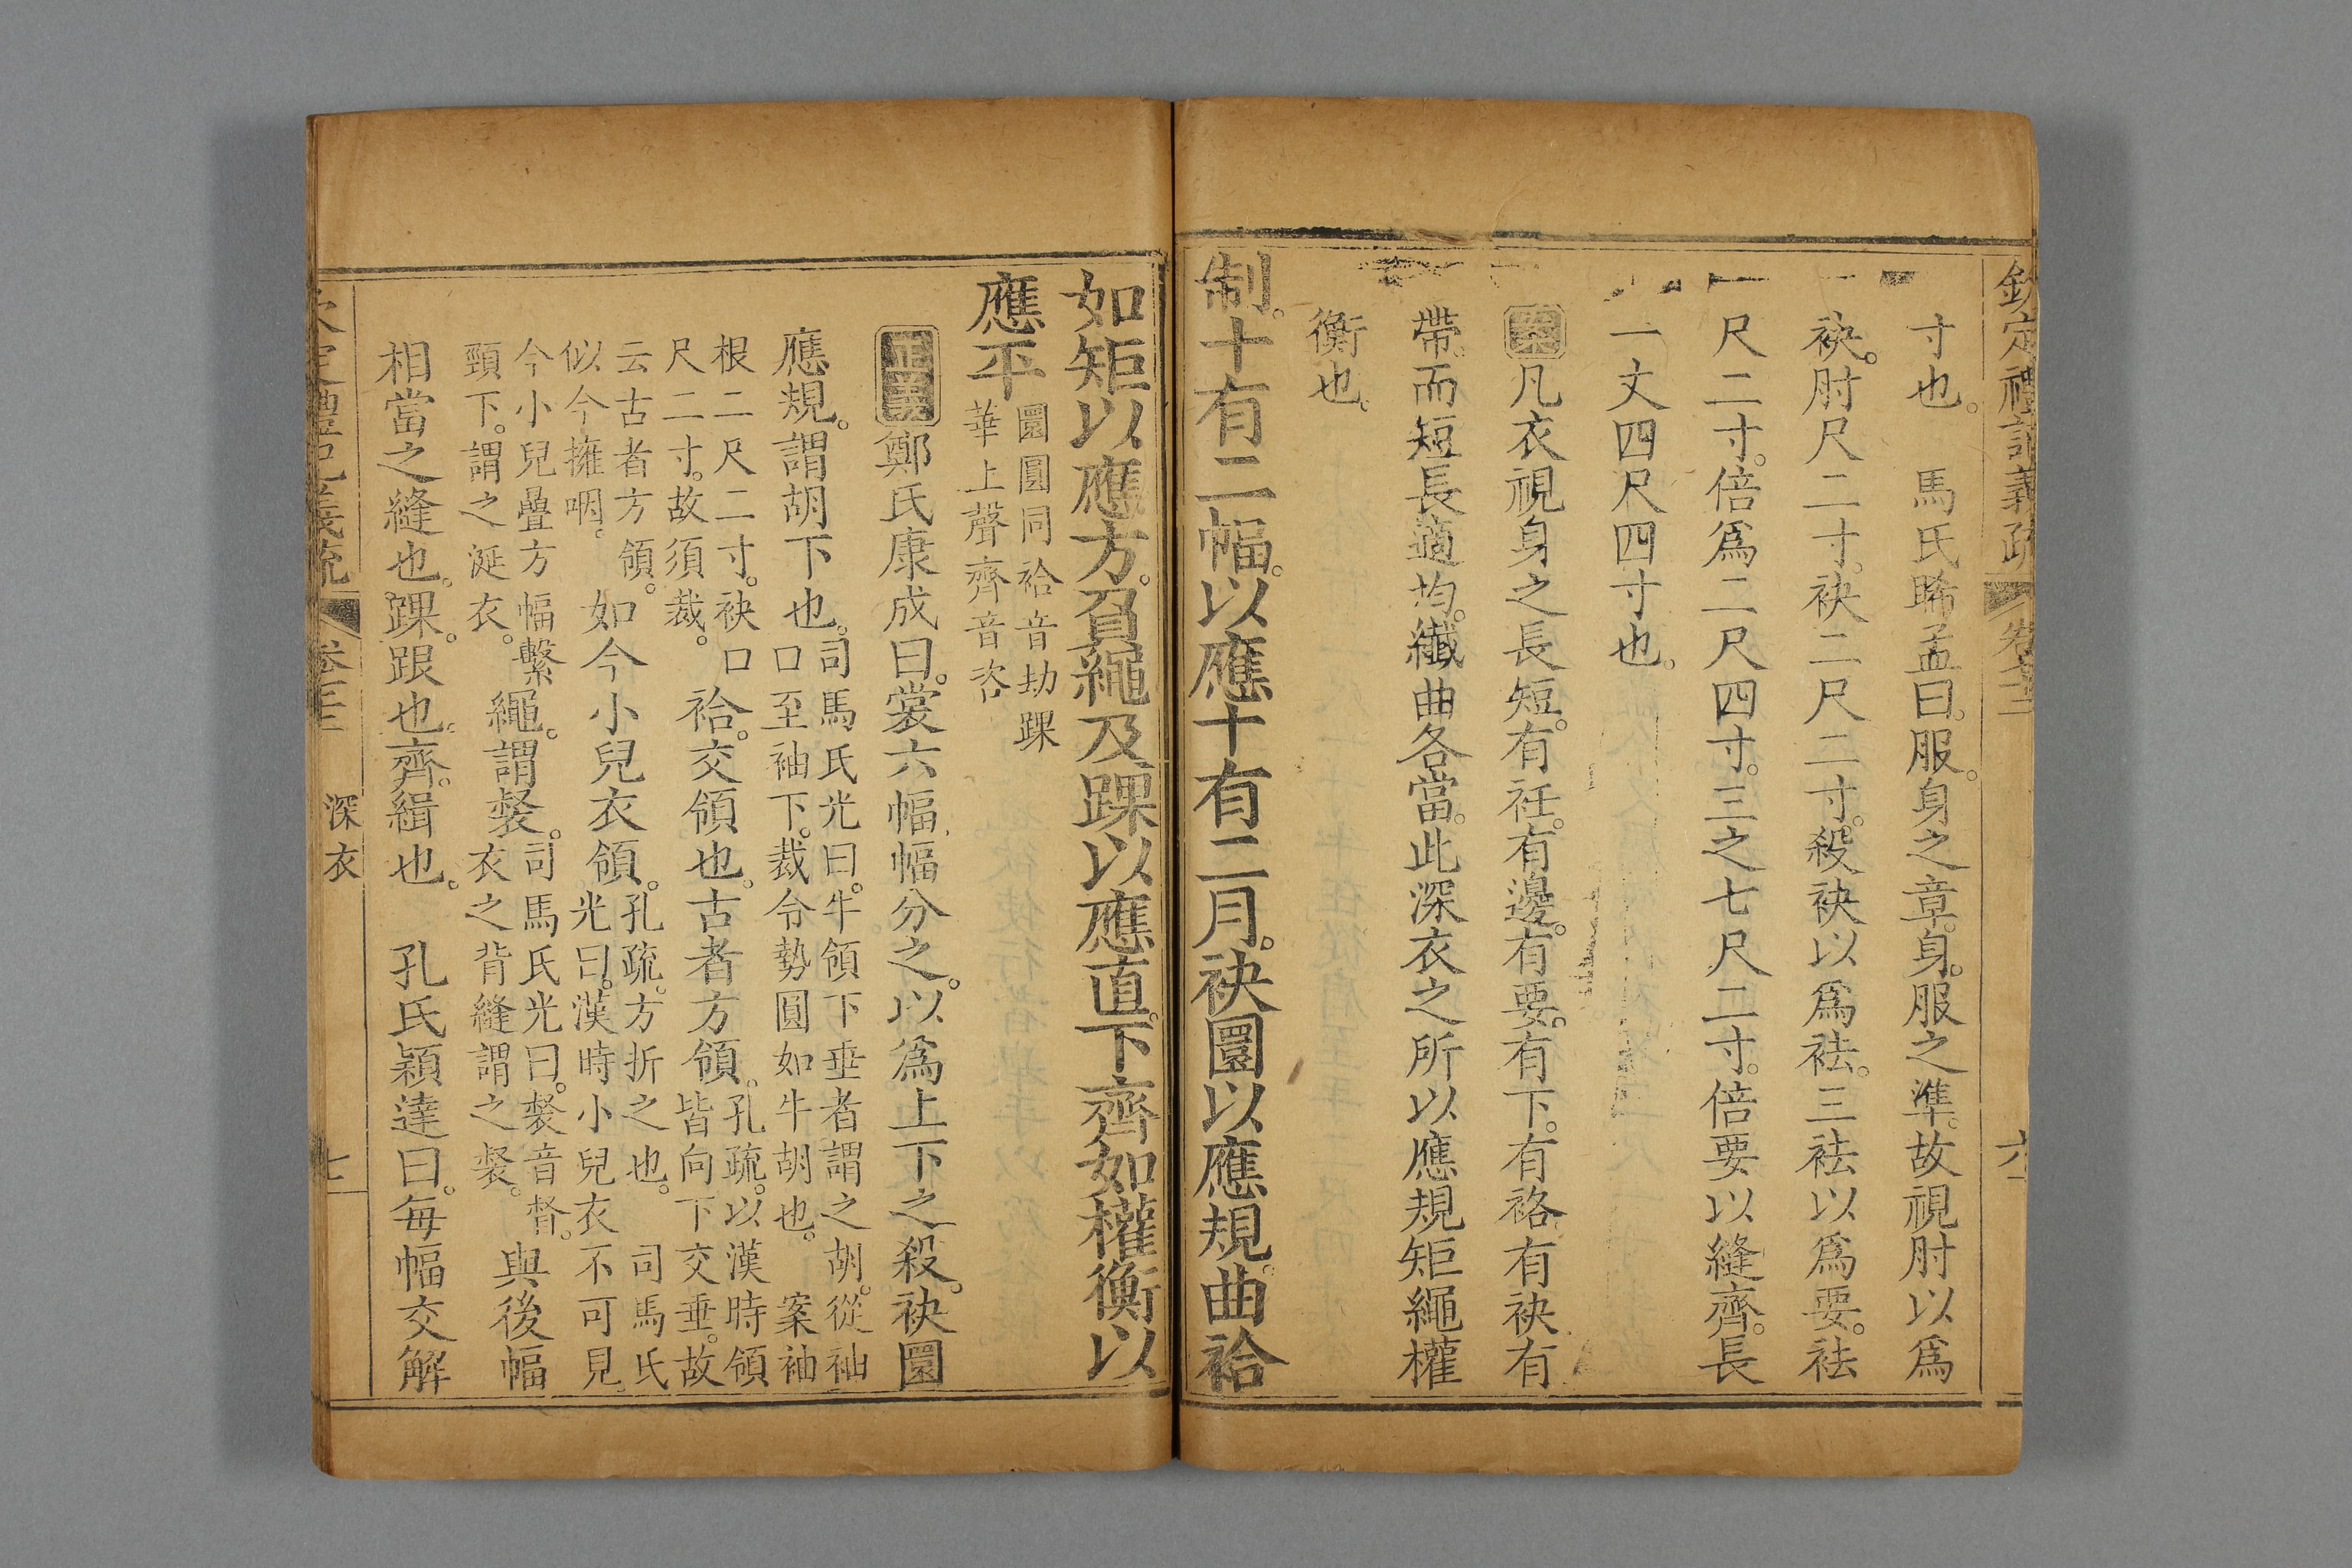 欽定禮記義疏
卷 六
寸也。 馬氏晞孟曰。服。身之章。身。服之準。故視肘以爲
袂。肘尺二寸。袂二尺二寸。殺袂以爲袪。三袪以爲要。袪
尺二寸。倍爲二尺四寸。三之七尺二寸。倍要以縫齊。長
一丈四尺四寸也。
案凡衣視身之長短。有衽。有邊。有要。有下。有袼有袂有
帶。而短長適均。纖曲各當。此深衣之所以應規矩繩權
衡也。
制。十有二幅。以應十有二月。袂圜以應規。曲袷
如矩以應方。負繩及踝以應直。下齊如權衡以
應平
圜圓同袷音劫踝
華上聲齊音咨
正義鄭氏康成曰。裳六幅。幅分之。以爲上下之殺。袂圜
應規。謂胡下也。
司馬氏光曰。牛領下垂者謂之胡。從袖
口至袖下。裁令勢圓如牛胡也。 案袖
根二尺二寸。袂口
尺二寸。故須裁。
袷。交領也。古者方領。
孔疏。以漢時領
皆向下交垂。故
云古者方領。
似今擁咽。
如今小兒衣領。
孔疏。方折之也。 司馬氏
光曰。漢時小兒衣不可見
今小兒疊方幅繫
頸下。謂之涎衣。
繩。謂裻。
司馬氏光曰。裻音督。
衣之背縫謂之裻。
與後幅
相當之縫也。踝。跟也。齊。緝也。 孔氏穎達曰。每幅交解
深衣
七